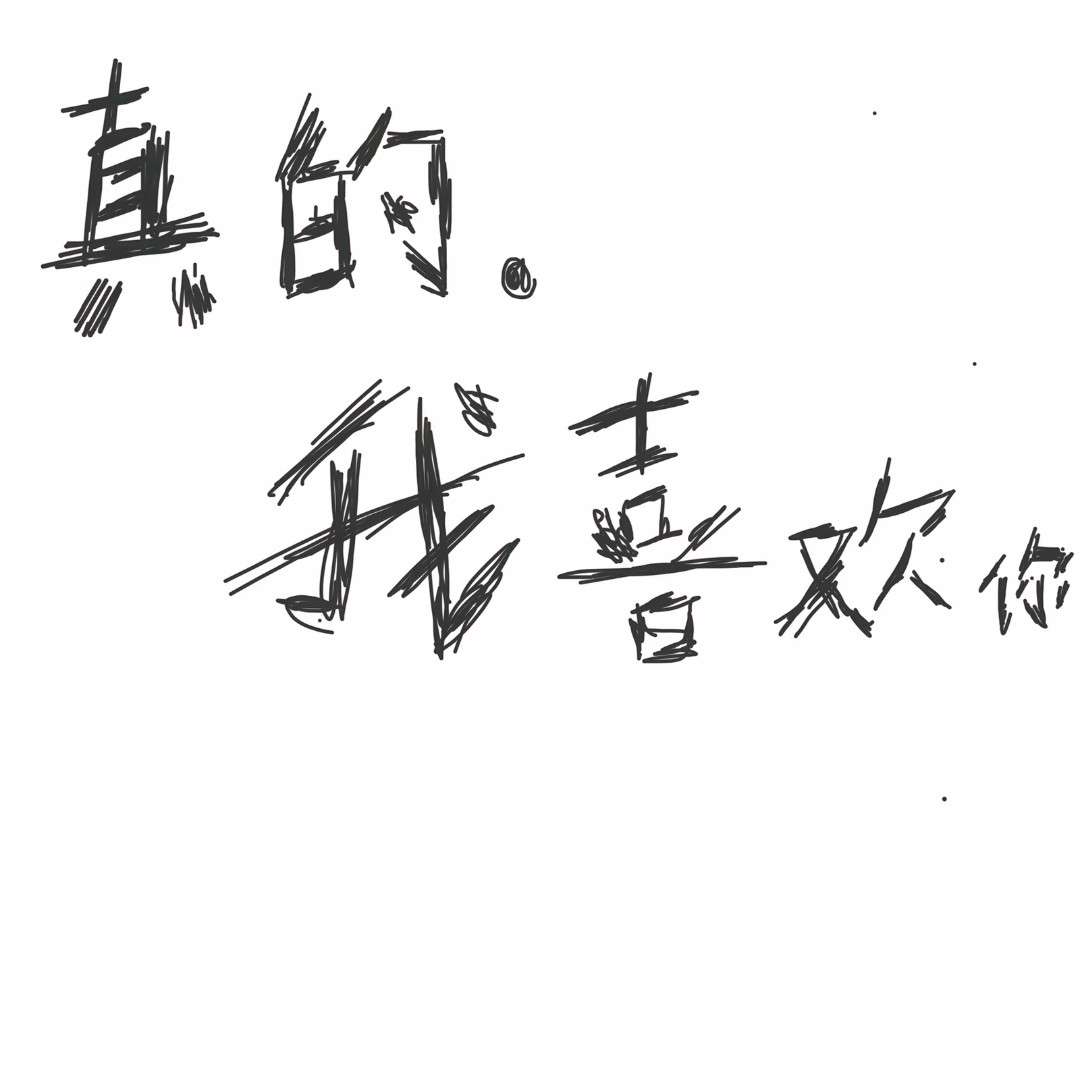 真的。
我喜欢你